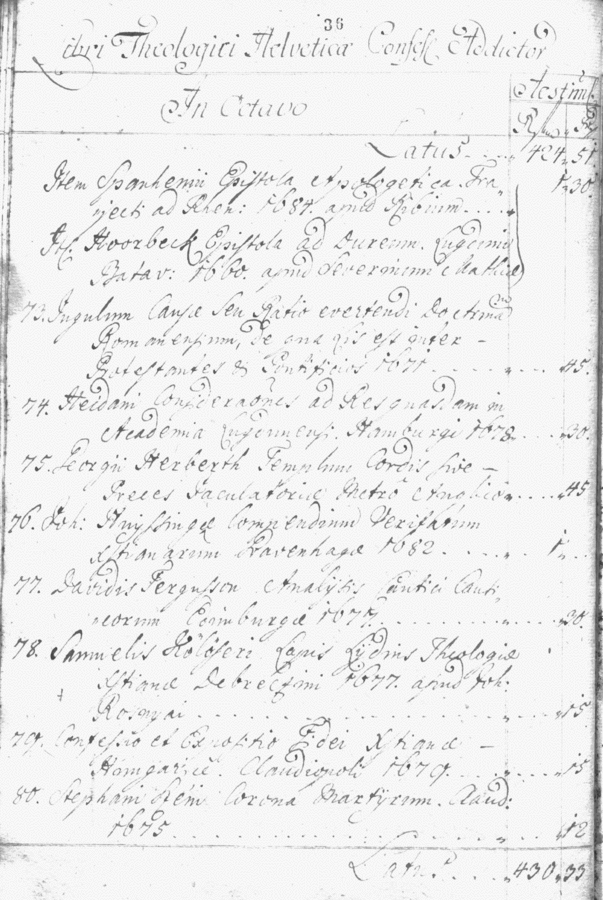 36
Libri Theologici Helveticæ Confess. Addictor
Aestim.
In Octavo
Latus.... 424.51
Item Spanhemii Epistola Apologetica. Tra-
jecti ad Rhen: 1684 apud Ribium.... 1.30
Hoorbeck Epistola ad Dureum. Lugduni
Batav: 1660. apud Severinum Mathiæ
73. Jugulum Causæ Seu Ratio evertendi Doctrinā
Romanensium, de qua Lis est inter -
Protestantes & Pontificios 1671 .... 45.
74. Heidani Consideraōnes ad Res quasdam in
Academia Lugdunensi. Hamburgi 1678. .... 30.
75. Georgii Herberth Templum Cordis sive -
Preces Jaculatoriæ Metro Anglico .... 45
76. Joh: Huyssingæ Compendium Veritatum
Xstianarum Gravenhagæ 1682. .... 1.
77. Davidis Fergusson Analysis Cantici Canti-
corum Edimburgæ 1677. .... 30.
78. Samuelis Köleseri Lapis Lydius Theologiæ
Xstianæ Debreczini 1677. apud Joh:
Rosnyai .... 15
79. Confessio et Expositio Fidei Xstianæ -
Hungaricè. Claudiopoli 1679. .... 15
80. Stephani Corona Martyrum. Claud:
1675 .... 12
Latus .... 430.33